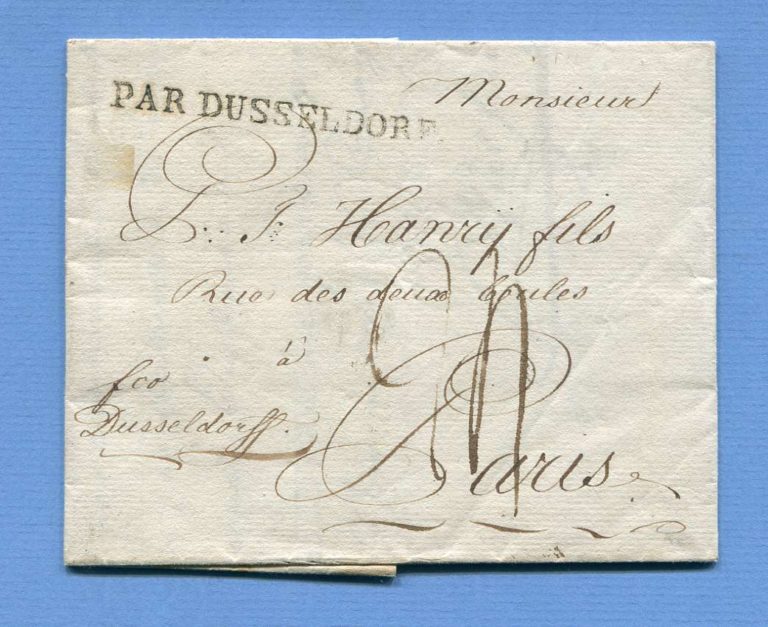 PAR DUSSELDORF
Monsieur
P. J. Hanrÿ fils
Rue des deux boules
à
fco
Dusseldorff.
Paris